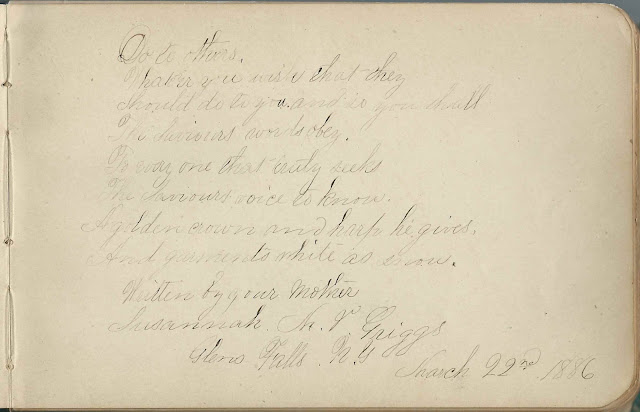 Do to others,
Whate'er you wish that they
Should do to you, and so you shall
The Saviours words obey.
To every one that truly seeks
The Saviours voice to know.
A golden crown and harp he gives,
And garments white as snow.
Written by your Mother
Susannah. M. Griggs
Glens Falls. N.Y
March 22nd. 1886